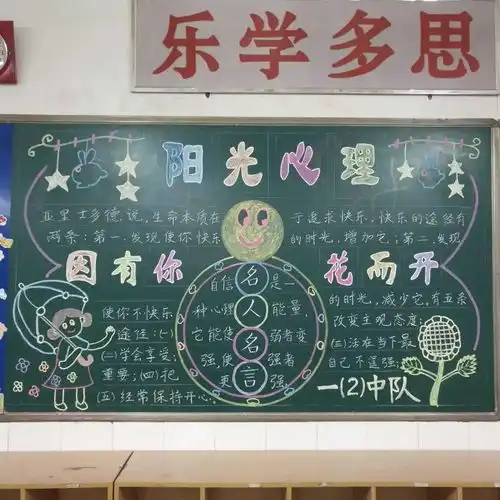 乐学多思
阳光心理
亚里士多德说,生命本质在于追求快乐,快乐的途径有
两条:第一,发现使你快乐的时光,增加它;第二,发现
因有你 花而开
使你不快乐的时光,减少它,有五条
途径:(一)改变主观态度;
(二)学会享受;(三)活在当下最
重要;(四)把自己不逞强;
(五)经常保持开心。
名人名言
自信是一
种心理能量
它能使弱者变
强,使强者
更强
一(2)中队